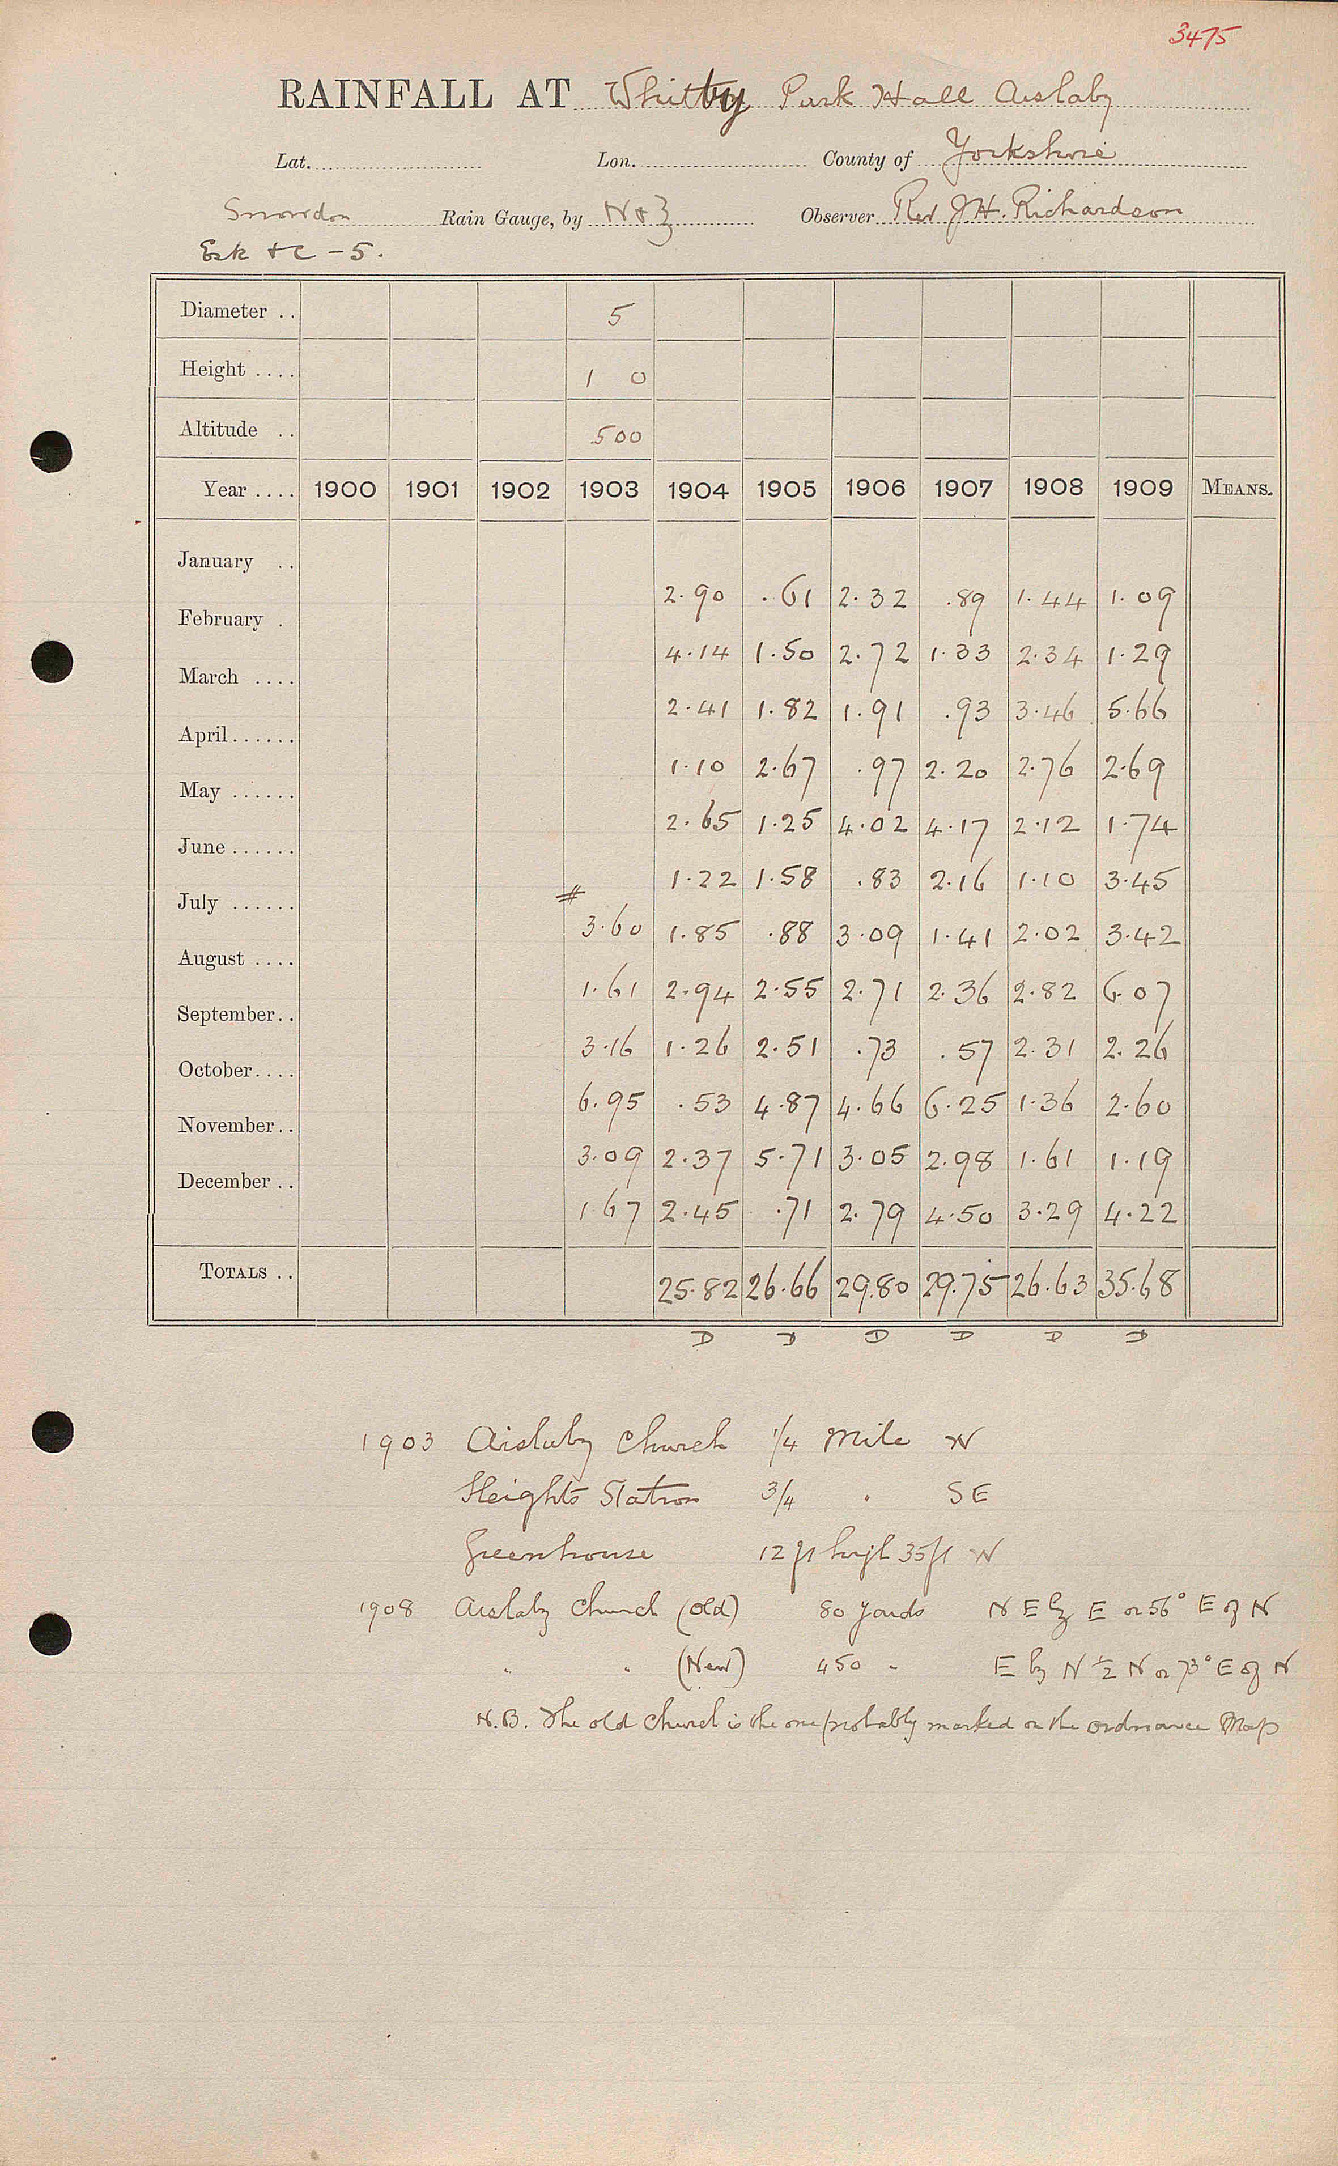 3475
RAINFALL AT Whitby Park Hall Aislaby
Lat. Lon. County of Yorkshire
Snowdon Rain Gauge, by N & Z Observer Rev J H. Richardson
Esk &c - 5.
Diameter .. 5
Height .... 1 0
Altitude .. 500
Year .... 1900 1901 1902 1903 1904 1905 1906 1907 1908 1909 MEANS.
January .. 2.90 .61 2.32 .89 1.44 1.09
February . 4.14 1.50 2.72 1.33 2.34 1.29
March .... 2.41 1.82 1.91 .93 3.46 5.66
April...... 1.10 2.67 .97 2.20 2.76 2.69
May ...... 2.65 1.25 4.02 4.17 2.12 1.74
June ...... 1.22 1.58 .83 2.16 1.10 3.45
July ...... 3.60 1.85 .88 3.09 1.41 2.02 3.42
August .... 1.61 2.94 2.55 2.71 2.36 2.82 6.07
September.. 3.16 1.26 2.51 .73 .57 2.31 2.26
October.... 6.95 .53 4.87 4.66 6.25 1.36 2.60
November.. 3.09 2.37 5.71 3.05 2.98 1.61 1.19
December .. 1.67 2.45 .71 2.79 4.50 3.29 4.22
TOTALS .. 25.82 26.66 29.80 29.75 26.63 35.68
D D D D D D
1903 Aislaby Church 1/4 Mile W
Sleights Station 3/4 " SE
Greenhouse 12 ft high 35 ft W
1908 Aislaby Church (Old) 80 yards N E by E or 56° E of N
" " (New) 450 " E by N 1/2 N or 73° E of N
N.B. The old Church is the one probably marked on the ordnance Map